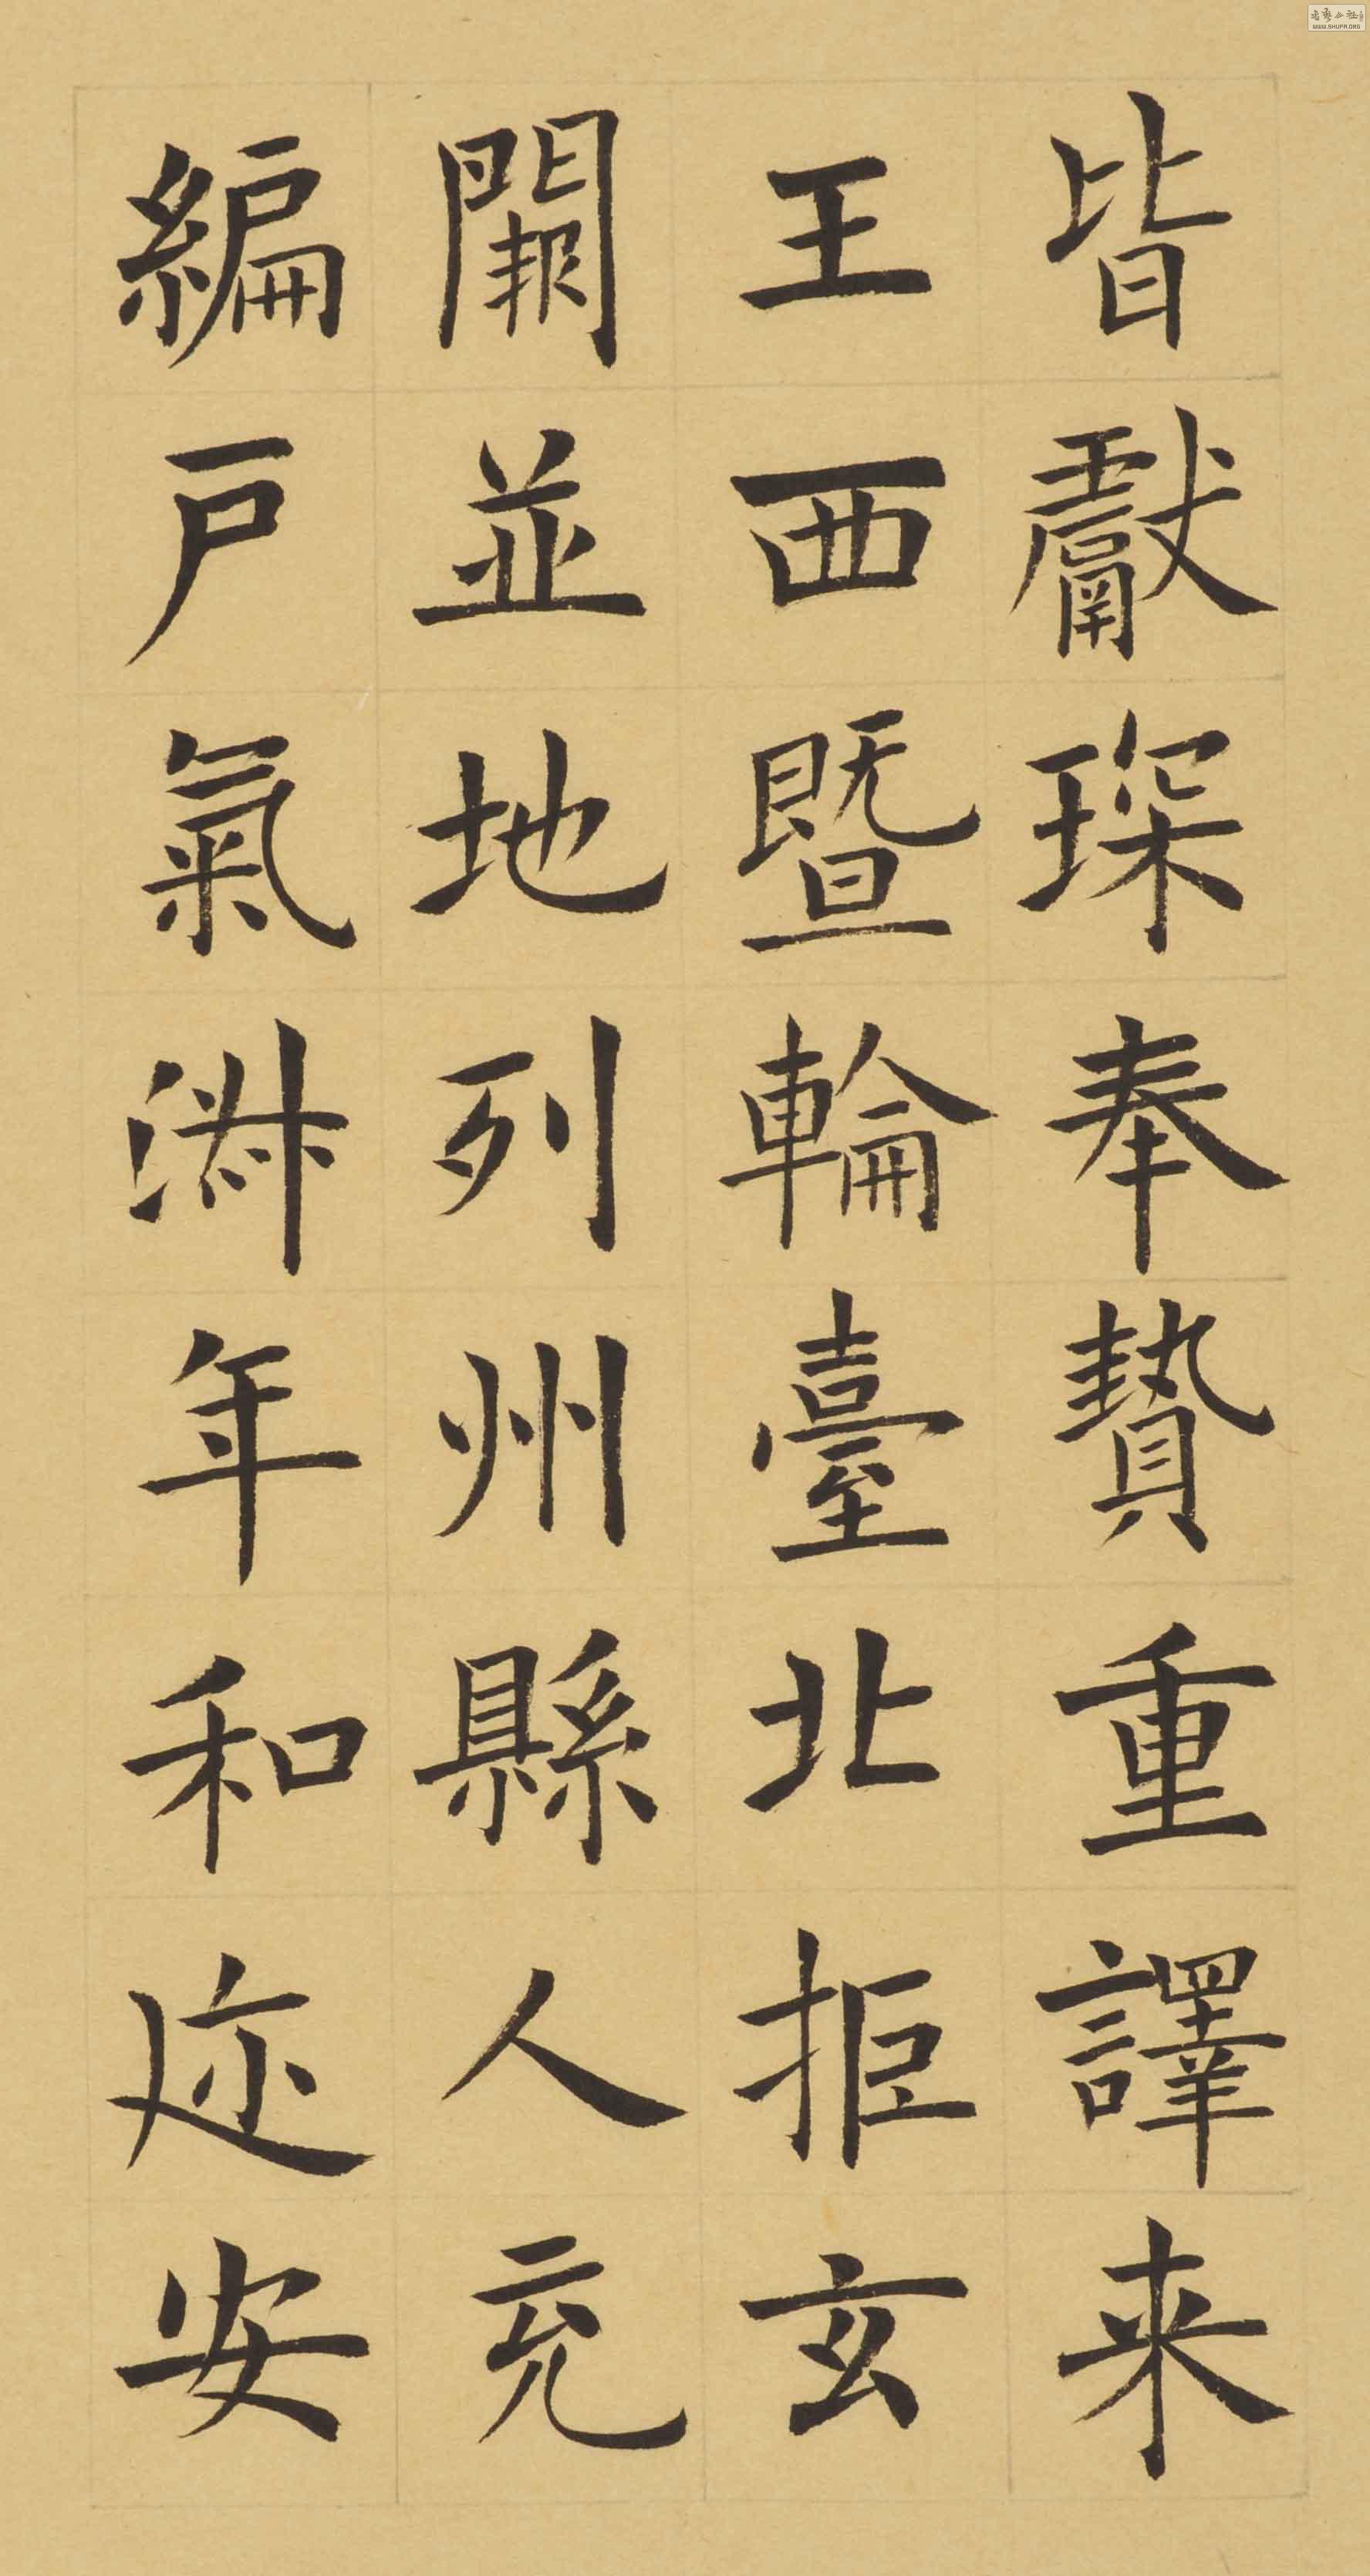 皆獻琛奉贄重譯来
王西暨輪臺北拒玄
闕並地列州縣人充
編戶氣淋年和迩安